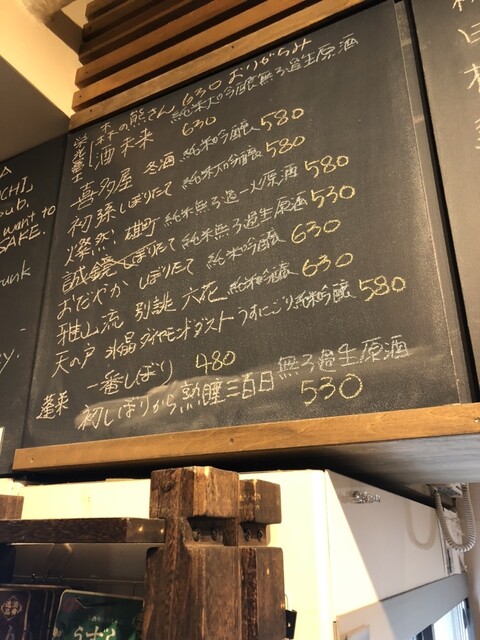 森の熊さん 630 おりがらみ
酒未来 純米大吟醸無ろ過生原酒
630
喜多屋 冬酒 純米吟醸 580
初孫 しぼりたて 純米大吟醸 580
燦然 雄町 純米無ろ過一火原酒 580
誠鏡 しぼりたて 純米無ろ過生原酒 530
おだやか しぼりたて 純米吟醸 630
雅山流 別誂 六花 純米吟醸 630
天の戸 水晶ダイヤモンドダスト うすにごり純米吟醸 580
蓬莱 一番しぼり 480
初しぼりから熟睡三百日 無ろ過生原酒
530
CHI,
oub.
want to
SAKE.
unk